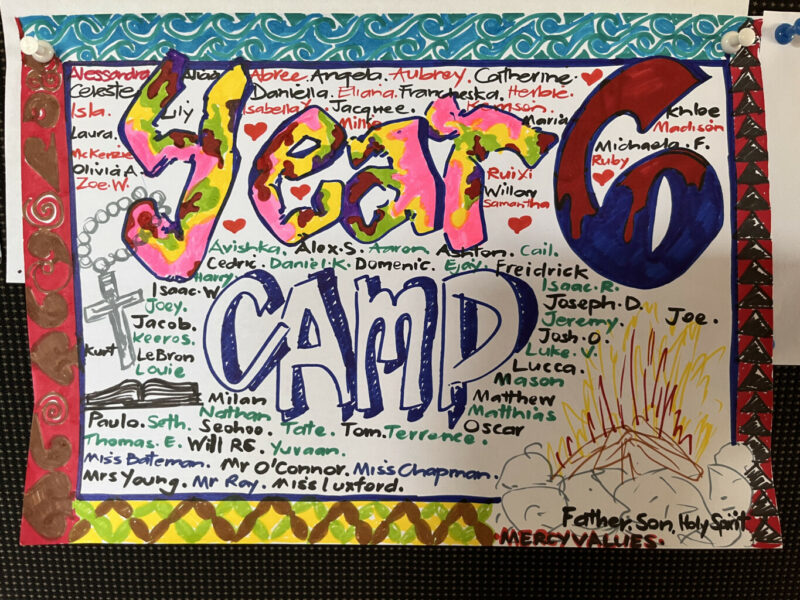 Alessandra. Alicia Abree. Angela. Aubrey. Catherine.
Celeste Daniella. Eliana. Francheska. Herbie.
Isla. Lily Isabella Y Jacquee. Kemson. Khloe
Laura. Millie Maria Madison
McKenzie Michaela. F.
Olivia A. Ruby
Zoe. W. RuiXi
Willow
Samantha
Year 6
Avishka. Alex.S. Aaron. Ashton. Cail.
Cedric. Daniel.K. Domenic. Ejay. Freidrick
Harry Isaac. R.
Isaac. W Joseph. D.
Joey. Jeremy. Joe.
Jacob. Josh. O.
Keeros. Luke. V.
Kurt LeBron Lucca.
Louie Mason
CAMP
Milan Matthew
Nathan Matthias
Paulo. Seth. Seohoo. Tate. Tom. Terrence. Oscar
Thomas. E. Will RE. Yuvaan.
Miss Bateman. Mr O'Connor. Miss Chapman.
Mrs Young. Mr Ray. Miss Luxford.
Father, Son, Holy Spirit
·MERCY VALUES·